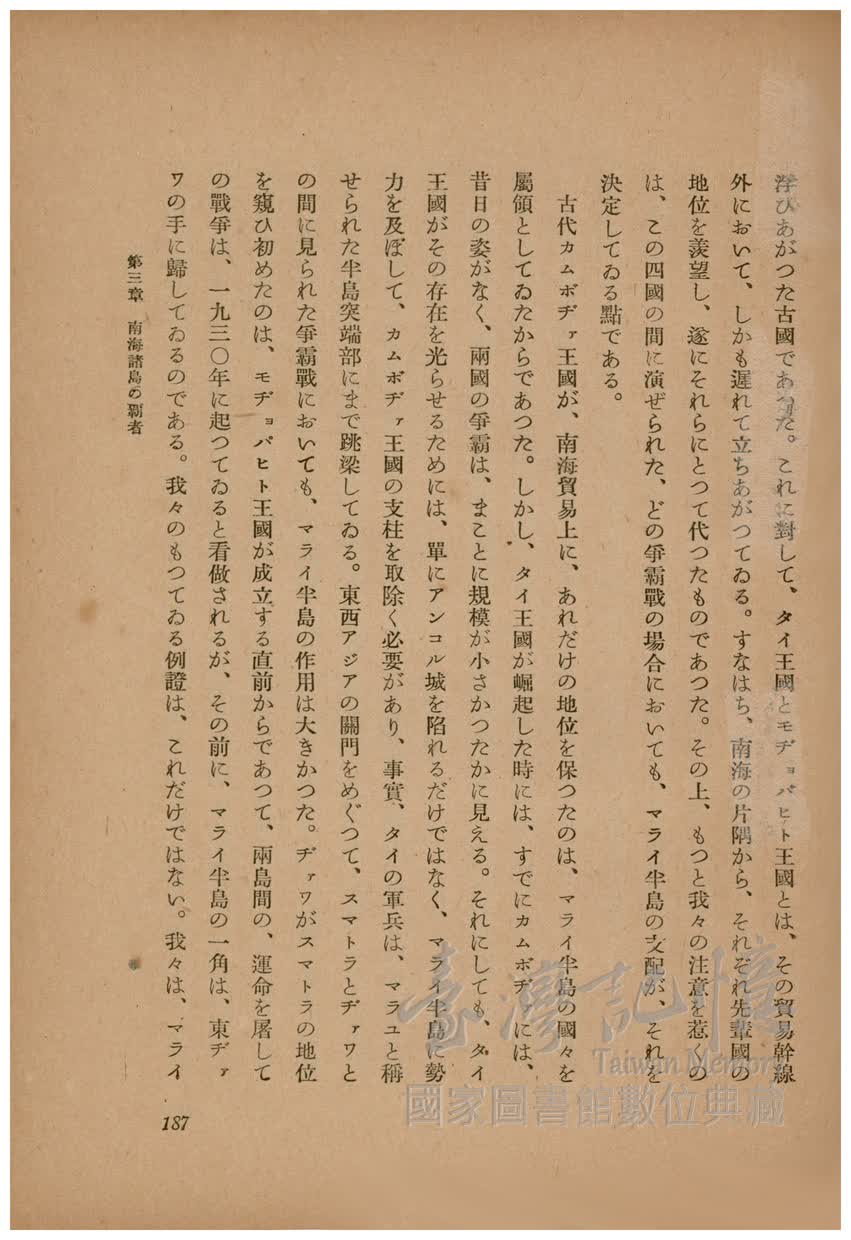 浮びあがつた古國であつた。これに對して、タイ王國とモヂョパヒト王國とは、その貿易幹線
外において、しかも遲れて立ちあがつてゐる。すなはち、南海の片隅から、それぞれ先輩國の
地位を羨望し、遂にそれらにとつて代つたものであつた。その上、もつと我々の注意を惹くの
は、この四國の間に演ぜられた、どの爭霸戰の場合においても、マライ半島の支配が、それを
決定してゐる點である。
古代カムボヂァ王國が、南海貿易上に、あれだけの地位を保つたのは、マライ半島の國々を
屬領としてゐたからであつた。しかし、タイ王國が崛起した時には、すでにカムボヂァには、
昔日の姿がなく、兩國の爭霸は、まことに規模が小さかつたかに見える。それにしても、タイ
王國がその存在を光らせるためには、單にアンコル城を陷れるだけではなく、マライ半島に勢
力を及ぼして、カムボヂァ王國の支柱を取除く必要があり、事實、タイの軍兵は、マラユと稱
せられた半島突端部にまで跳梁してゐる。東西アジアの關門をめぐつて、スマトラとヂァワと
の間に見られた爭霸戰においても、マライ半島の作用は大きかつた。ヂァワがスマトラの地位
を窺ひ初めたのは、モヂョパヒト王國が成立する直前からであつて、兩島間の、運命を屠して
の戰爭は、一九三〇年に起つてゐると看做されるが、その前に、マライ半島の一角は、東ヂァ
ワの手に歸してゐるのである。我々のもつてゐる例證は、これだけではない。我々は、マライ
第三章 南海諸島の覇者
187
臺灣記憶
Taiwan Memory
國家圖書館數位典藏